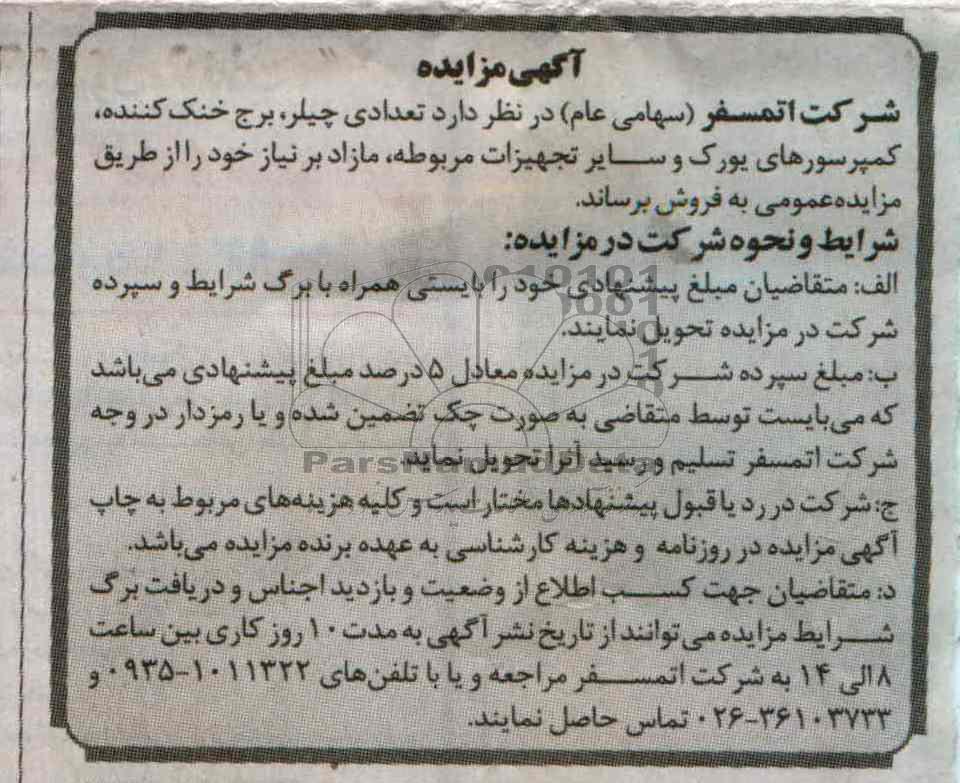 آگهی مزایده
شرکت اتمسفر (سهامی عام) در نظر دارد تعدادی چیلر، برج خنک کننده،
کمپرسورهای یورک و سایر تجهیزات مربوطه، مازاد بر نیاز خود را از طریق
مزایده عمومی به فروش برساند.
شرایط و نحوه شرکت در مزایده:
الف: متقاضیان مبلغ پیشنهادی خود را بایستی همراه با برگ شرایط و سپرده
شرکت در مزایده تحویل نمایند.
ب: مبلغ سپرده شرکت در مزایده معادل ۵ درصد مبلغ پیشنهادی می‌باشد
که می‌بایست توسط متقاضی به صورت چک تضمین شده و یا رمزدار در وجه
شرکت اتمسفر تسلیم و رسید آنرا تحویل نماید.
ج: شرکت در رد یا قبول پیشنهادها مختار است و کلیه هزینه‌های مربوط به چاپ
آگهی مزایده در روزنامه و هزینه کارشناسی به عهده برنده مزایده می‌باشد.
د: متقاضیان جهت کسب اطلاع از وضعیت و بازدید اجناس و دریافت برگ
شرایط مزایده می‌توانند از تاریخ نشر آگهی به مدت ۱۰ روز کاری بین ساعت
۸ الی ۱۴ به شرکت اتمسفر مراجعه و یا با تلفن‌های ۱۰۱۱۳۲۲-۰۹۳۵ و
۳۶۱۰۳۷۳۳-۰۲۶ تماس حاصل نمایند.